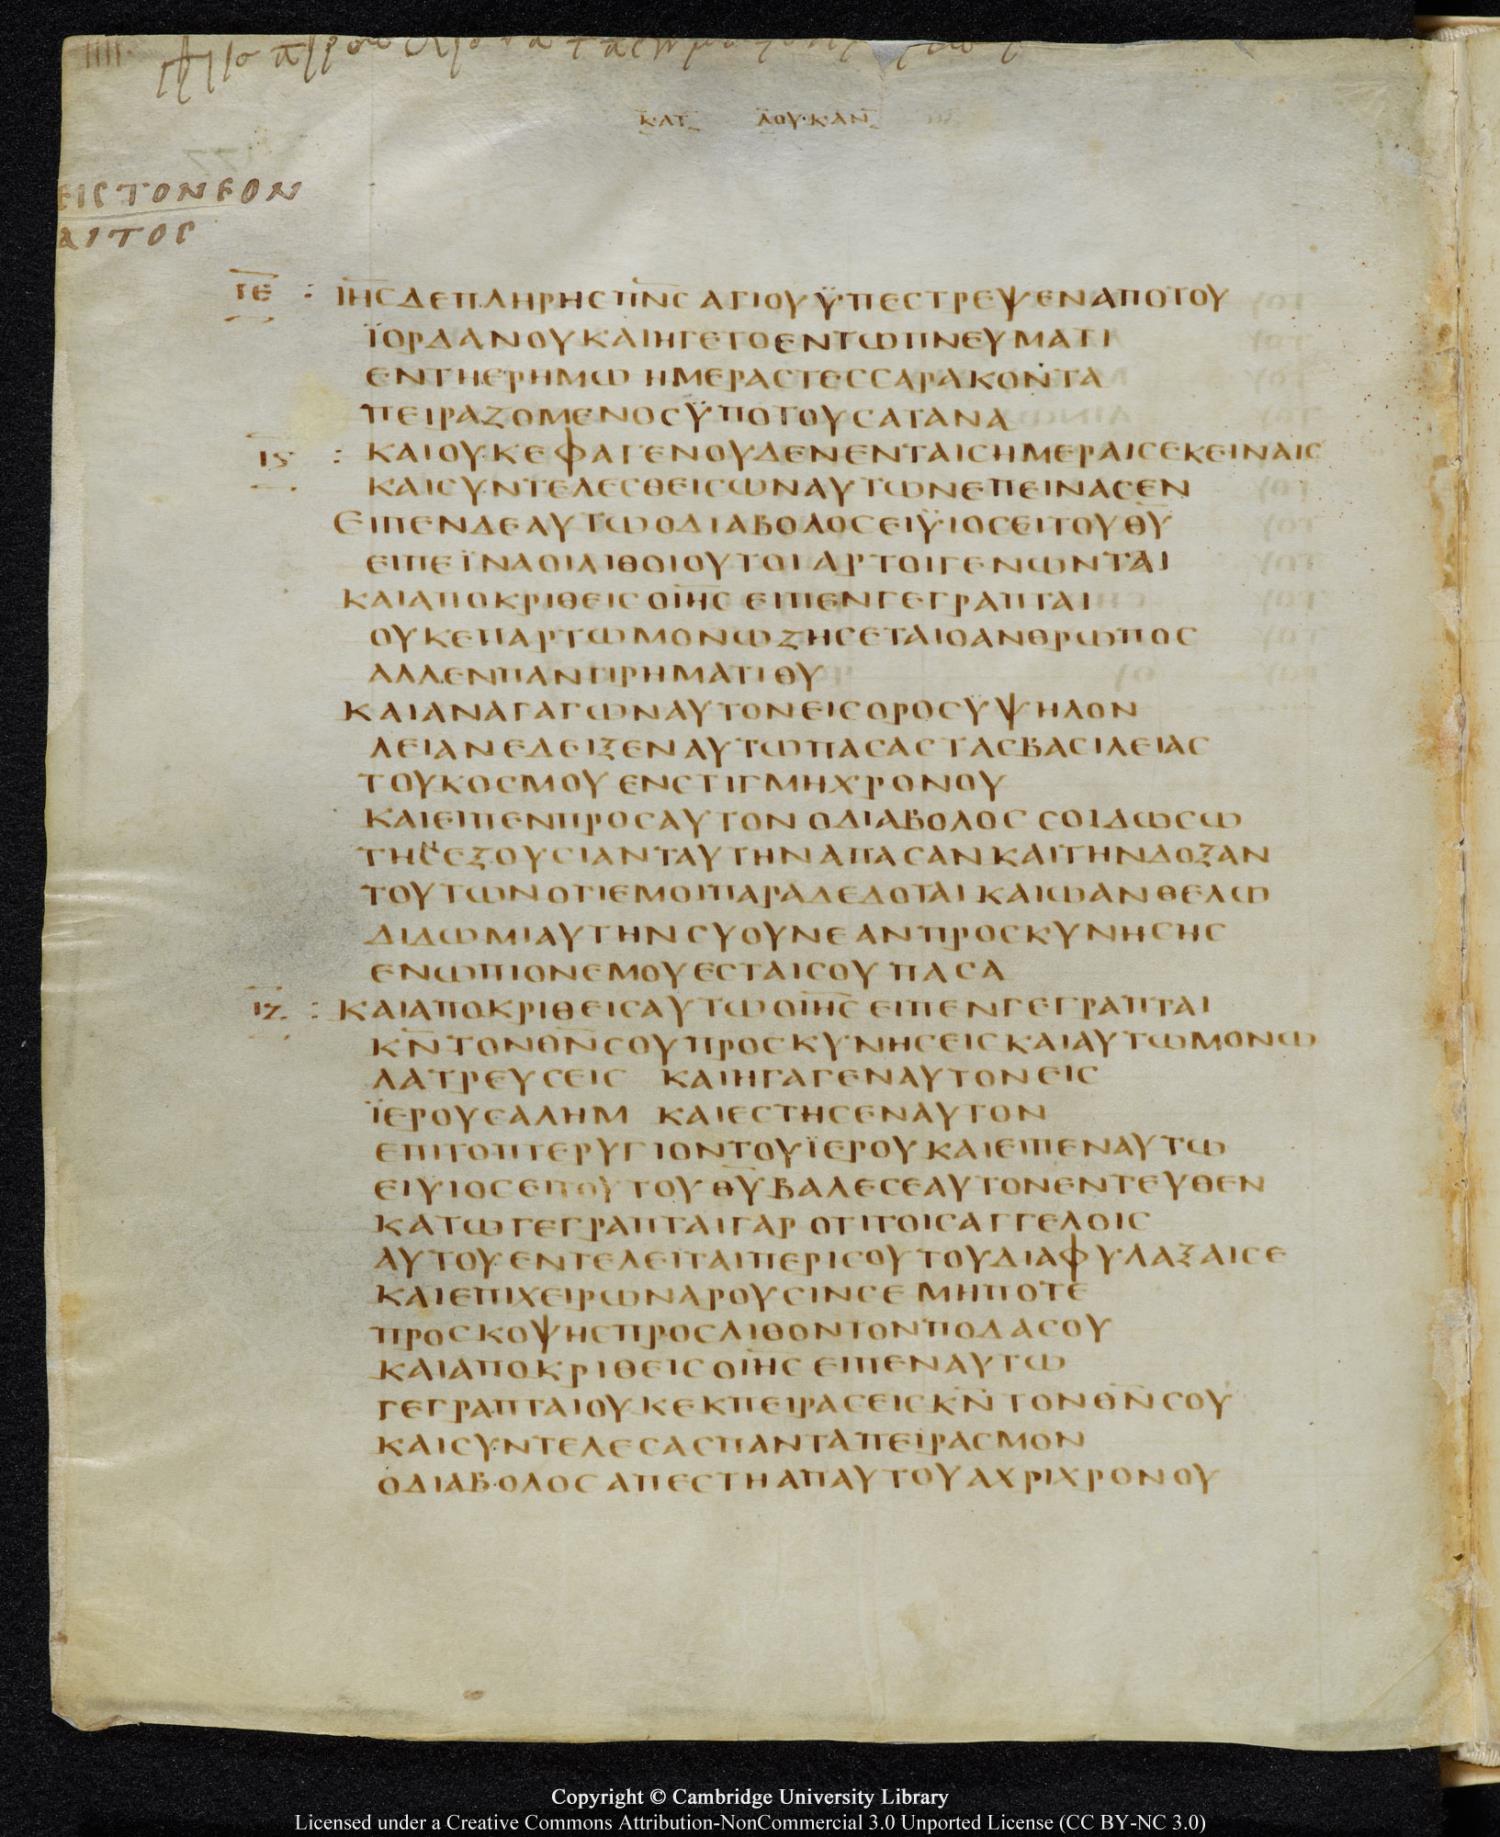 ΚΑΤ ΛΟΥΚΑΝ
ΕΙϹΤΟΝΕΟΝ
ΑΙΤΟϹ
ΙΕ : ΙΗϹΔΕΠΛΗΡΗϹΠΝϹΑΓΙΟΥΫΠΕϹΤΡΕΨΕΝΑΠΟΤΟΥ
ΪΟΡΔΑΝΟΥΚΑΙΗΓΕΤΟΕΝΤΩΠΝΕΥΜΑΤΙ
ΕΝΤΗΕΡΗΜΩ ΗΜΕΡΑϹΤΕϹϹΑΡΑΚΟΝΤΑ
ΠΕΙΡΑΖΟΜΕΝΟϹΫΠΟΤΟΥϹΑΤΑΝΑ
ΙϚ : ΚΑΙΟΥΚΕΦΑΓΕΝΟΥΔΕΝΕΝΤΑΙϹΗΜΕΡΑΙϹΕΚΕΙΝΑΙϹ
ΚΑΙϹΥΝΤΕΛΕϹΘΕΙϹΩΝΑΥΤΩΝΕΠΕΙΝΑϹΕΝ
ΕΙΠΕΝΔΕΑΥΤΩΟΔΙΑΒΟΛΟϹΕΙΫΙΟϹΕΙΤΟΥΘΥ
ΕΙΠΕΪΝΑΟΙΛΙΘΟΙΟΥΤΟΙΑΡΤΟΙΓΕΝΩΝΤΑΙ
ΚΑΙΑΠΟΚΡΙΘΕΙϹΟΙΗϹ ΕΙΠΕΝΓΕΓΡΑΠΤΑΙ
ΟΥΚΕΠΑΡΤΩΜΟΝΩΖΗϹΕΤΑΙΟΑΝΘΡΩΠΟϹ
ΑΛΛΕΝΠΑΝΤΙΡΗΜΑΤΙΘΥ
ΚΑΙΑΝΑΓΑΓΩΝΑΥΤΟΝΕΙϹΟΡΟϹΥΨΗΛΟΝ
ΛΕΙΑΝΕΔΕΙΞΕΝΑΥΤΩΠΑϹΑϹΤΑϹΒΑϹΙΛΕΙΑϹ
ΤΟΥΚΟϹΜΟΥ ΕΝϹΤΙΓΜΗΧΡΟΝΟΥ
ΚΑΙΕΙΠΕΝΠΡΟϹΑΥΤΟΝ ΟΔΙΑΒΟΛΟϹ ϹΟΙΔΩϹΩ
ΤΗϹΕΞΟΥϹΙΑΝΤΑΥΤΗΝΑΠΑϹΑΝΚΑΙΤΗΝΔΟΞΑΝ
ΤΟΥΤΩΝΟΤΙΕΜΟΙΠΑΡΑΔΕΔΟΤΑΙ ΚΑΙΩΑΝΘΕΛΩ
ΔΙΔΩΜΙΑΥΤΗΝϹΥΟΥΝΕΑΝΠΡΟϹΚΥΝΗϹΗϹ
ΕΝΩΠΙΟΝΕΜΟΥΕϹΤΑΙϹΟΥ ΠΑϹΑ
ΙΖ : ΚΑΙΑΠΟΚΡΙΘΕΙϹΑΥΤΩΟΙΗϹ ΕΙΠΕΝΓΕΓΡΑΠΤΑΙ
ΚΝΤΟΝΘΝϹΟΥΠΡΟϹΚΥΝΗϹΕΙϹΚΑΙΑΥΤΩΜΟΝΩ
ΛΑΤΡΕΥϹΕΙϹ ΚΑΙΗΓΑΓΕΝΑΥΤΟΝΕΙϹ
ΪΕΡΟΥϹΑΛΗΜ ΚΑΙΕϹΤΗϹΕΝΑΥΤΟΝ
ΕΠΙΤΟΠΤΕΡΥΓΙΟΝΤΟΥΪΕΡΟΥΚΑΙΕΙΠΕΝΑΥΤΩ
ΕΙΥΙΟϹΕΙΤΟΥΤΟΥΘΥΒΑΛΕϹΕΑΥΤΟΝΕΝΤΕΥΘΕΝ
ΚΑΤΩΓΕΓΡΑΠΤΑΙΓΑΡ ΟΤΙΤΟΙϹΑΓΓΕΛΟΙϹ
ΑΥΤΟΥΕΝΤΕΛΕΙΤΑΙΠΕΡΙϹΟΥΤΟΥΔΙΑΦΥΛΑΞΑΙϹΕ
ΚΑΙΕΠΙΧΕΙΡΩΝΑΡΟΥϹΙΝϹΕ ΜΗΠΟΤΕ
ΠΡΟϹΚΟΨΗϹΠΡΟϹΛΙΘΟΝΤΟΝΠΟΔΑϹΟΥ
ΚΑΙΑΠΟΚΡΙΘΕΙϹΟΙΗϹ ΕΙΠΕΝΑΥΤΩ
ΓΕΓΡΑΠΤΑΙΟΥΚΕΚΠΕΙΡΑϹΕΙϹΚΝ ΤΟΝΘΝϹΟΥ
ΚΑΙϹΥΝΤΕΛΕϹΑϹΠΑΝΤΑΠΕΙΡΑϹΜΟΝ
ΟΔΙΑΒΟΛΟϹΑΠΕϹΤΗΑΠΑΥΤΟΥΑΧΡΙΧΡΟΝΟΥ
Copyright © Cambridge University Library
Licensed under a Creative Commons Attribution-NonCommercial 3.0 Unported License (CC BY-NC 3.0)